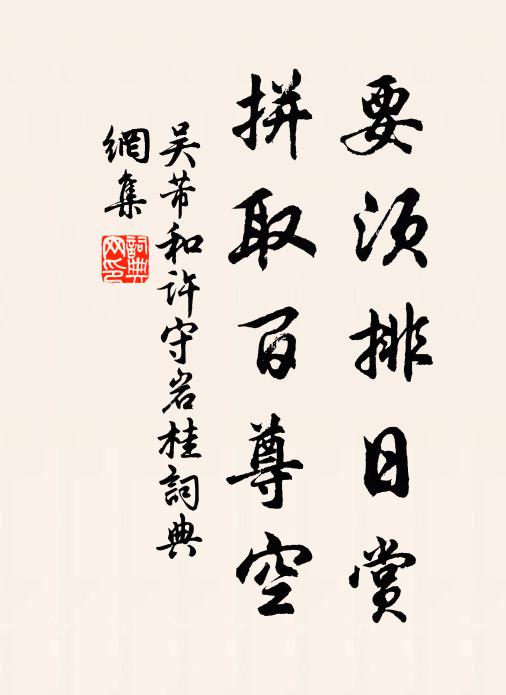 要須排日賞
拼取百尊空
吴芾和許守岩桂詞典
網集
詞典網印